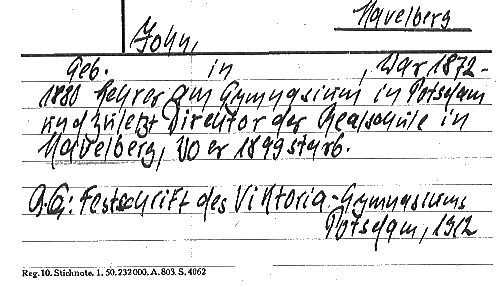 Havelberg
John,
Geb. in , war 1872-
1880 Lehrer am Gymnasium in Potsdam
und zuletzt Direktor der Realschule in
Havelberg, wo er 1899 starb.
Q.G: Festschrift des Viktoria-Gymnasiums
Potsdam, 1912
Reg. 10. Stichnote. 1. 50. 232000. A. 803. S. 4062